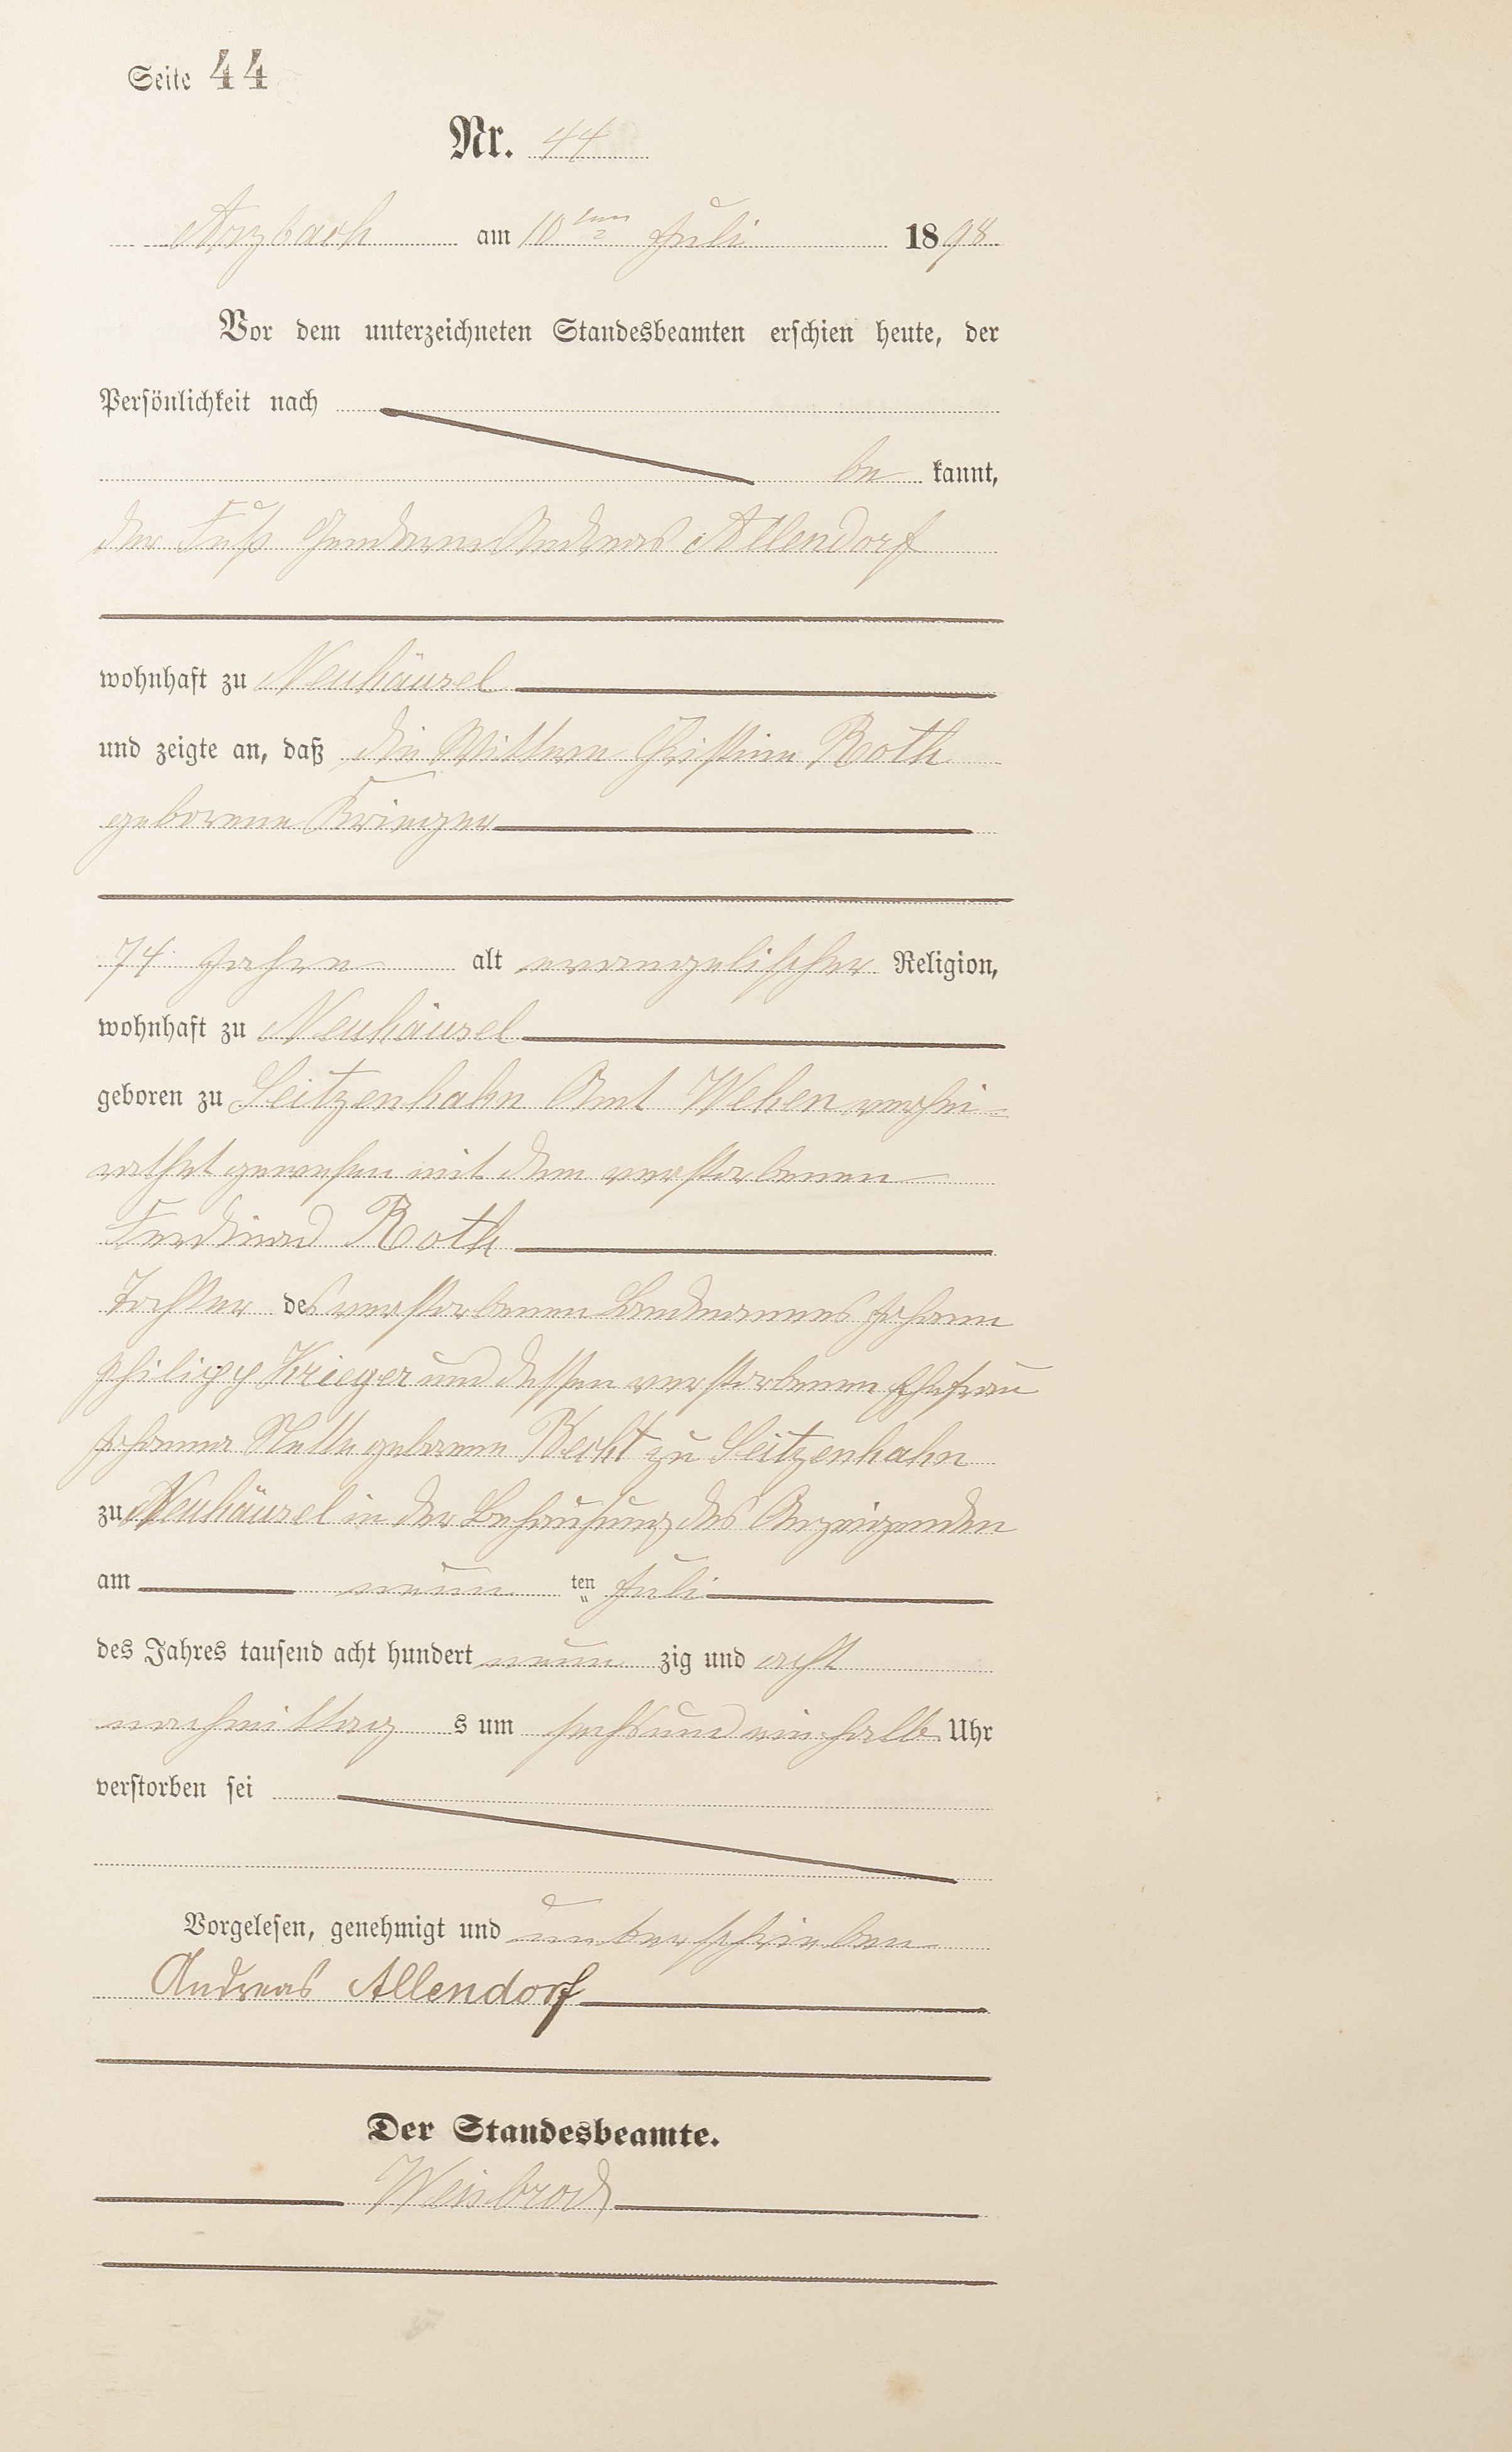 Seite 44
Nr. 44
Arzbach am 10ten Juli 1898
Vor dem unterzeichneten Standesbeamten erschien heute, der
Persönlichkeit nach
be kannt,
der Fuß Gendarm Andreas Allendorf
wohnhaft zu Neuhäusel
und zeigte an, daß die Wittwe Christine Roth
geborene Krieger
74 Jahre alt evangelischer Religion,
wohnhaft zu Neuhäusel
geboren zu Seitzenhahn Amt Wehen verhei-
rathet gewesen mit dem verstorbenen
Ferdinad Roth
Tochter des verstorbenen Landmannes Johann
Philipp Krieger und dessen verstorbenen Ehefrau
Johanna geborene zu Seitzenhahn
zu Neuhäusel in der Behausung des Anzeigenden
am neun ten Juli
des Jahres tausend acht hundert neun zig und acht
nachmittag s um sechs und ein halb Uhr
verstorben sei
Vorgelesen, genehmigt und unterschrieben
Andreas Allendorf
Der Standesbeamte.
Weisbrod